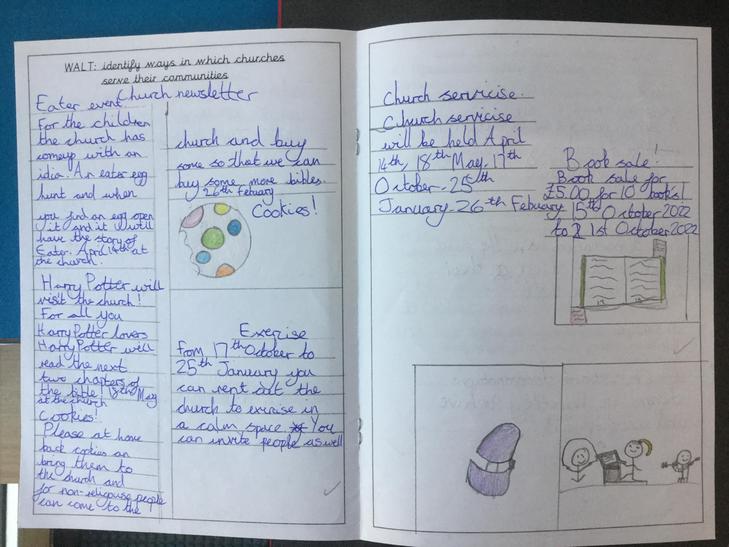 WALT: identify ways in which churches
serve their communities
Church newsletter
Eater event
For the children
the church has
comeup with an
idia. An eater egg
hunt and when
you find an egg open
it and it will
have the story of
Eater. April 14th at
the church.
Harry Potter will
visit the church!
For all you
Harry Potter lovers
Harry Potter will
read the next
two chapters of
the bible. 18th May
at the church
Cookies!
Please at home
back cookies an
bring them to
the church and
for non-religouse people
can come to the
church and buy
some so that we can
buy some more bibles.
26th Febuary
Cookies!
Exercise
from 17th October to
25th January you
can rent out the
church to exercise in
a calm space. You
can invite people as well
Church servicise.
Church servicise
will be held April
14th, 18th May, 17th
October, 25th
January, 26th Febuary
Book sale!
Book sale for
£5.00 for 10 books!
15th October 2022
to 1st October 2022